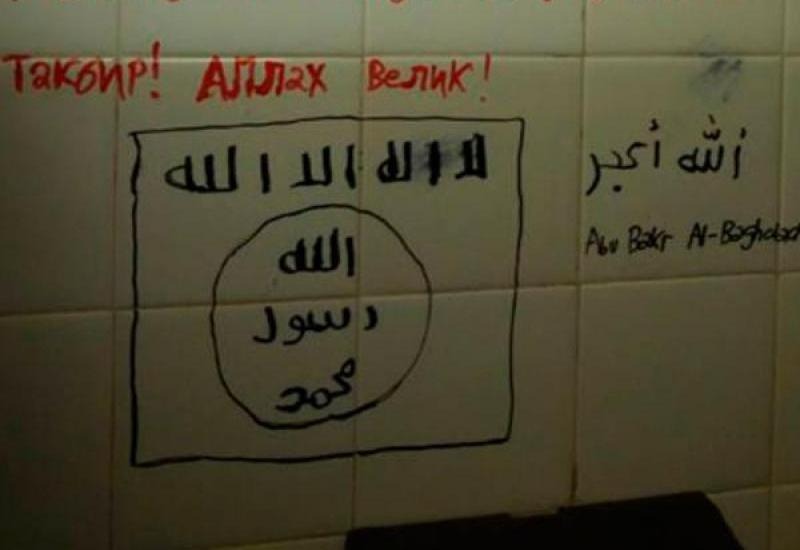 Такбир! Аллах велик!
لا اله الا الله
الله
رسول
محمد
الله أكبر
Abu Bakr Al-Baghdad